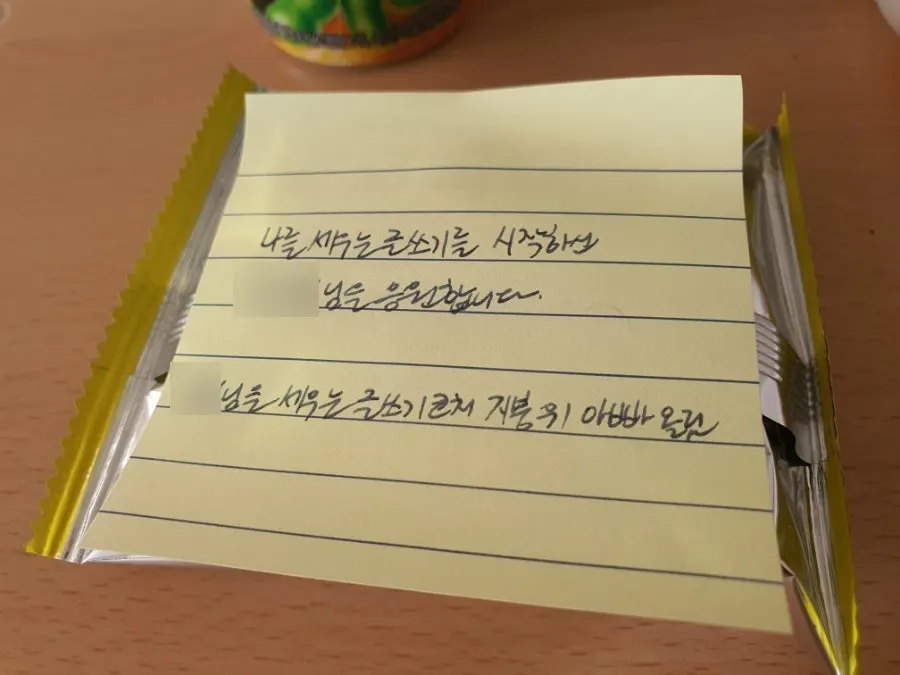 나를 세우는 글쓰기를 시작하신
님을 응원합니다.
님을 세우는 글쓰기 코치 지붕 위 아빠 올림